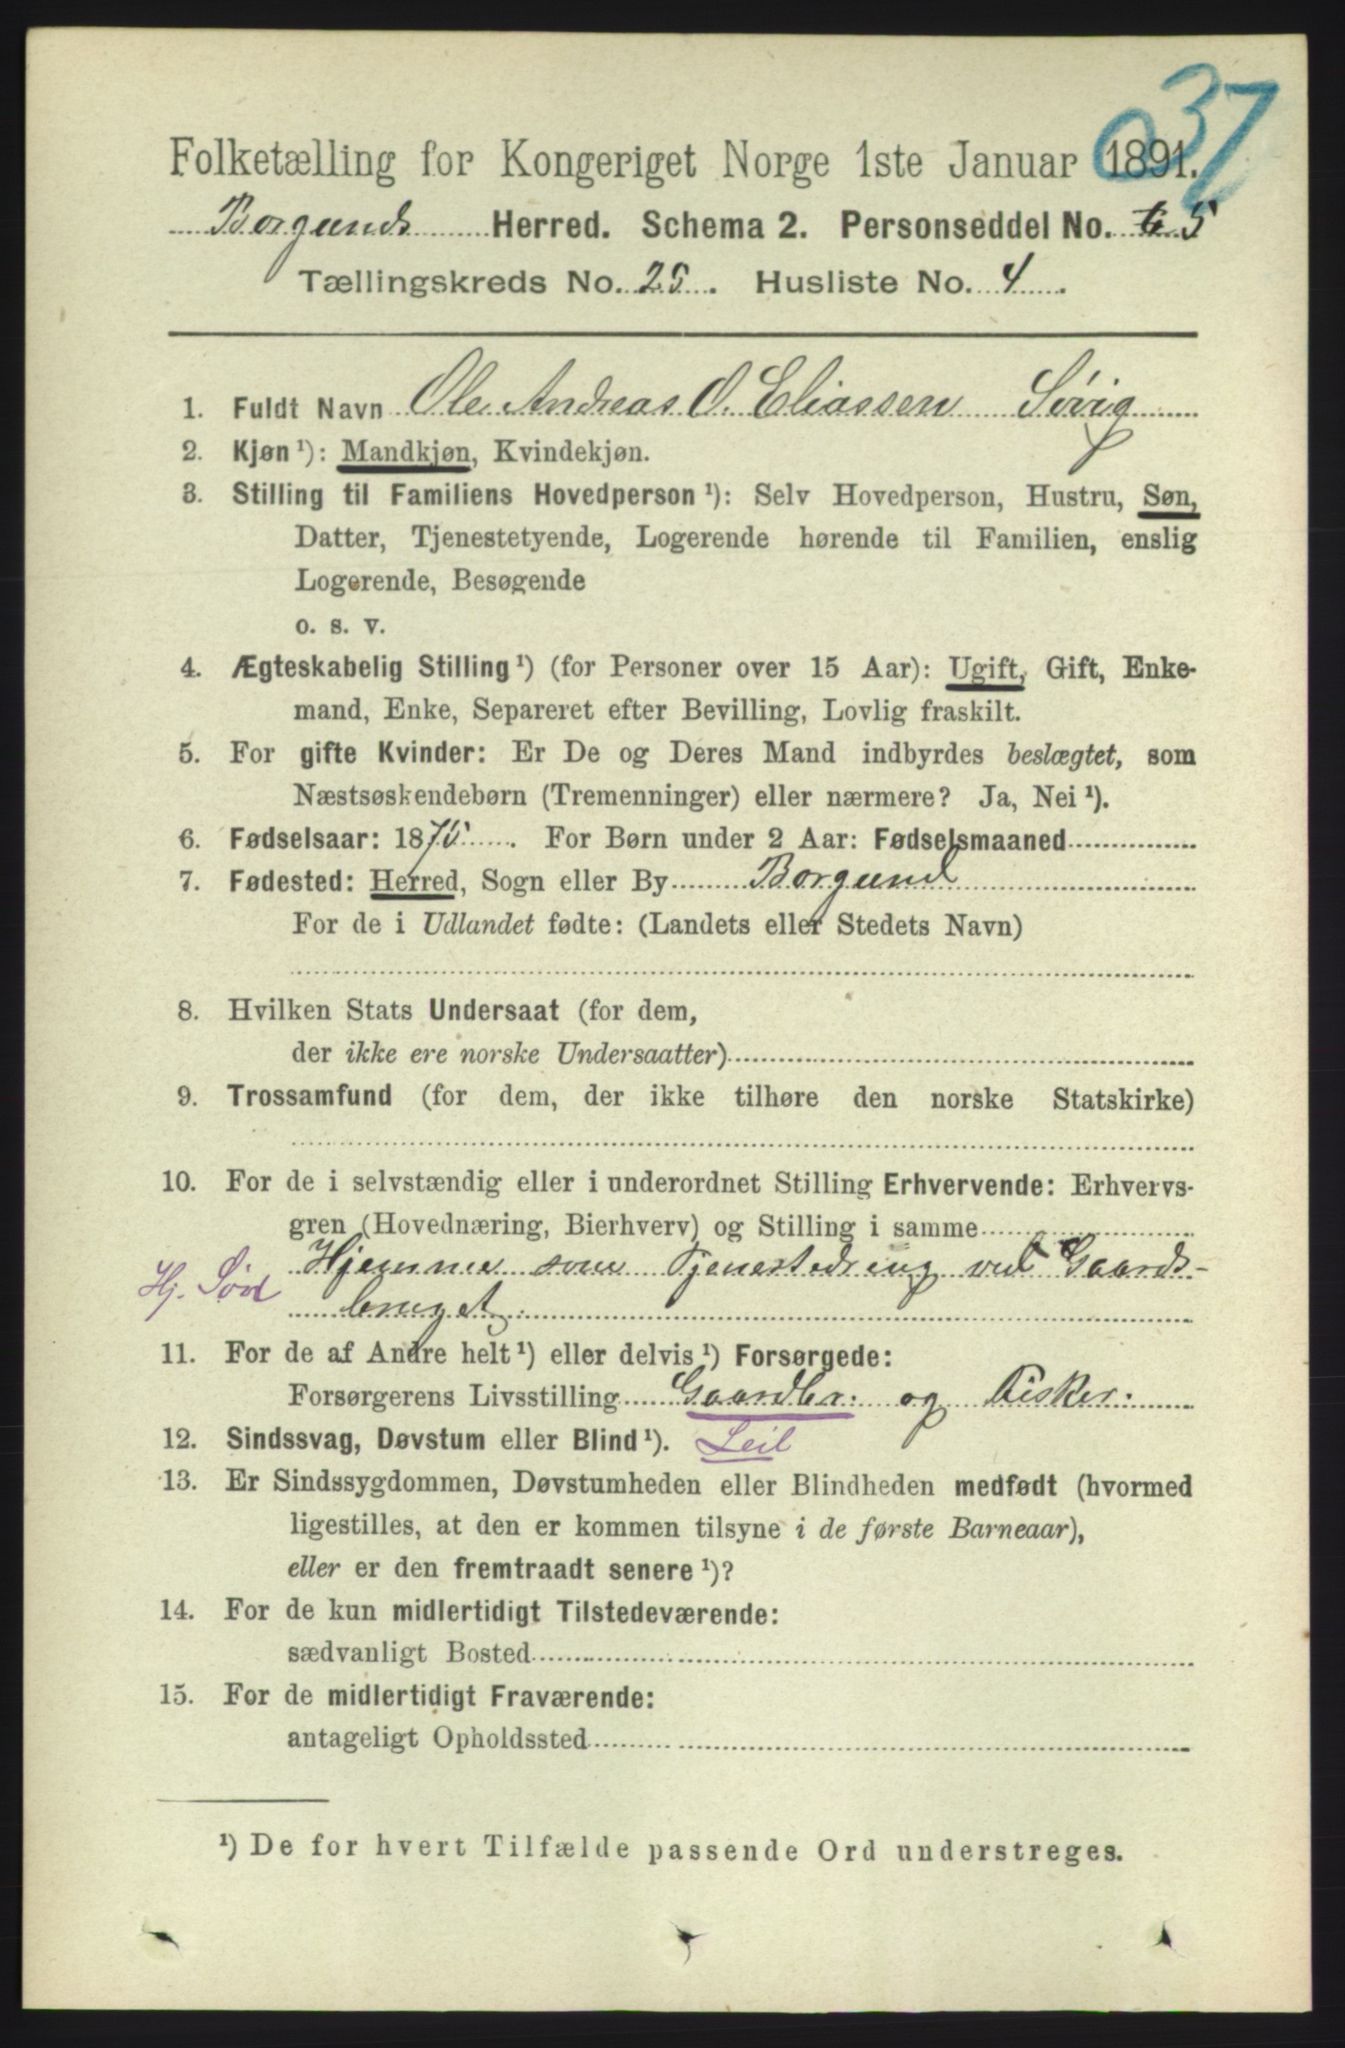 037
Folketælling for Kongeriget Norge 1ste Januar 1891.
Borgunds Herred. Schema 2. Personseddel No. 6 5
Tællingskreds No. 25. Husliste No. 4.
1. Fuldt Navn Ole Andreas O. Eliassen Sørig
2. Kjøn¹): Mandkjøn, Kvindekjøn.
3. Stilling til Familiens Hovedperson¹): Selv Hovedperson, Hustru, Søn,
Datter, Tjenestetyende, Logerende hørende til Familien, enslig
Logerende, Besøgende
o. s. v.
4. Ægteskabelig Stilling¹) (for Personer over 15 Aar): Ugift, Gift, Enke-
mand, Enke, Separeret efter Bevilling, Lovlig fraskilt.
5. For gifte Kvinder: Er De og Deres Mand indbyrdes beslægtet, som
Næstsøskendebørn (Tremenninger) eller nærmere? Ja, Nei¹).
6. Fødselsaar: 1875. For Børn under 2 Aar: Fødselsmaaned
7. Fødested: Herred, Sogn eller By Borgund
For de i Udlandet fødte: (Landets eller Stedets Navn)
8. Hvilken Stats Undersaat (for dem,
der ikke ere norske Undersaatter)
9. Trossamfund (for dem, der ikke tilhøre den norske Statskirke)
10. For de i selvstændig eller i underordnet Stilling Erhvervende: Erhvervs-
gren (Hovednæring, Bierhverv) og Stilling i samme
Hjemme som Tjenestedreng ved Gaards-
Hj. Søn bruget
11. For de af Andre helt¹) eller delvis¹) Forsørgede:
Forsørgerens Livsstilling Gaardbr. og Fisker.
12. Sindssvag, Døvstum eller Blind¹). Leil
13. Er Sindssygdommen, Døvstumheden eller Blindheden medfødt (hvormed
ligestilles, at den er kommen tilsyne i de første Barneaar),
eller er den fremtraadt senere¹)?
14. For de kun midlertidigt Tilstedeværende:
sædvanligt Bosted
15. For de midlertidigt Fraværende:
antageligt Opholdssted
¹) De for hvert Tilfælde passende Ord understreges.